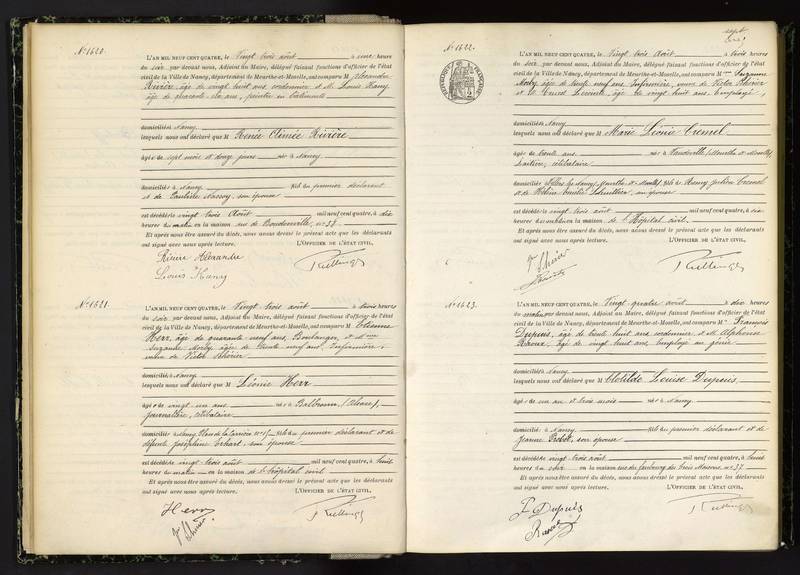 N° 1620.
L'AN MIL NEUF CENT QUATRE, le Vingt trois août à une heure
du soir par devant nous, Adjoint au Maire, délégué faisant fonctions d'officier de l'état
civil de la Ville de Nancy, département de Meurthe-et-Moselle, ont comparu M Alexandre
Rivière, âgé de vingt huit ans, cordonnier et M. Louis Hamy
âgé de quarante ans, peintre en bâtiments
domiciliés à Nancy
lesquels nous ont déclaré que M Renée Aimée Rivière
âgée sept mois et douze jours née à Nancy
domiciliée à Nancy fille du premier déclarant
et de son épouse
est décédée vingt trois Août mil neuf cent quatre, à dix
heures du matin en la maison rue de Boudonville, n° 37.
Et après nous être assuré du décès, nous avons dressé le présent acte que les déclarants
ont signé avec nous après lecture. L'OFFICIER DE L'ÉTAT CIVIL,
Rivière Alexandre
Louis Hamy
N° 1621.
L'AN MIL NEUF CENT QUATRE, le Vingt trois août à trois heures
du soir par devant nous, Adjoint au Maire, délégué faisant fonctions d'officier de l'état
civil de la Ville de Nancy, département de Meurthe-et-Moselle, ont comparu M Etienne
Herr, âgé de quarante neuf ans, Boulanger, et Mme
Suzanne âgée de trente neuf ans, Infirmière,
veuve de Victor
domiciliés à Nancy
lesquels nous ont déclaré que M Léonie Herr
âgée vingt un ans née à Balbronn, (Alsace),
journalière, célibataire
domiciliée à Nancy, Place de la Carrière fille du premier déclarant et de
défunte Joséphine Erhart, son épouse
est décédée vingt trois août mil neuf cent quatre, à huit
heures du matin en la maison de l'hôpital civil
Et après nous être assuré du décès, nous avons dressé le présent acte que les déclarants
ont signé avec nous après lecture. L'OFFICIER DE L'ÉTAT CIVIL,
Herr
N° 1622.
L'AN MIL NEUF CENT QUATRE, le Vingt trois Août à trois heures
du soir par devant nous, Adjoint au Maire, délégué faisant fonctions d'officier de l'état
civil de la Ville de Nancy, département de Meurthe-et-Moselle, ont comparu Mme Suzanne
âgée de trente neuf ans, Infirmière, veuve de Victor
et âgé de vingt huit ans, Employé,
domiciliés à Nancy
lesquels nous ont déclaré que M Marie Léonie Cremel
âgée de trente ans née à Vaudeville, (Meurthe et Moselle),
célibataire
domiciliée à fille de Remy Julien Cremel
et de son épouse
est décédée vingt trois août mil neuf cent quatre, à dix
heures du matin en la maison de l'Hôpital civil.
Et après nous être assuré du décès, nous avons dressé le présent acte que les déclarants
ont signé avec nous après lecture. L'OFFICIER DE L'ÉTAT CIVIL,
N° 1623.
L'AN MIL NEUF CENT QUATRE, le Vingt quatre août à dix heures
du matin par devant nous, Adjoint au Maire, délégué faisant fonctions d'officier de l'état
civil de la Ville de Nancy, département de Meurthe-et-Moselle, ont comparu M François
Dupuis, âgé de trente huit ans, cordonnier et M. Alphonse
âgé de vingt huit ans, employé au génie
domiciliés à Nancy
lesquels nous ont déclaré que M Clotilde Louise Dupuis
âgée un an et trois mois née à Nancy
domiciliée à Nancy fille du premier déclarant et de
Jeanne son épouse
est décédée vingt trois août mil neuf cent quatre, à huit
heures du soir en la maison rue du faubourg des trois Maisons n° 37
Et après nous être assuré du décès, nous avons dressé le présent acte que les déclarants
ont signé avec nous après lecture. L'OFFICIER DE L'ÉTAT CIVIL,
F. Dupuis